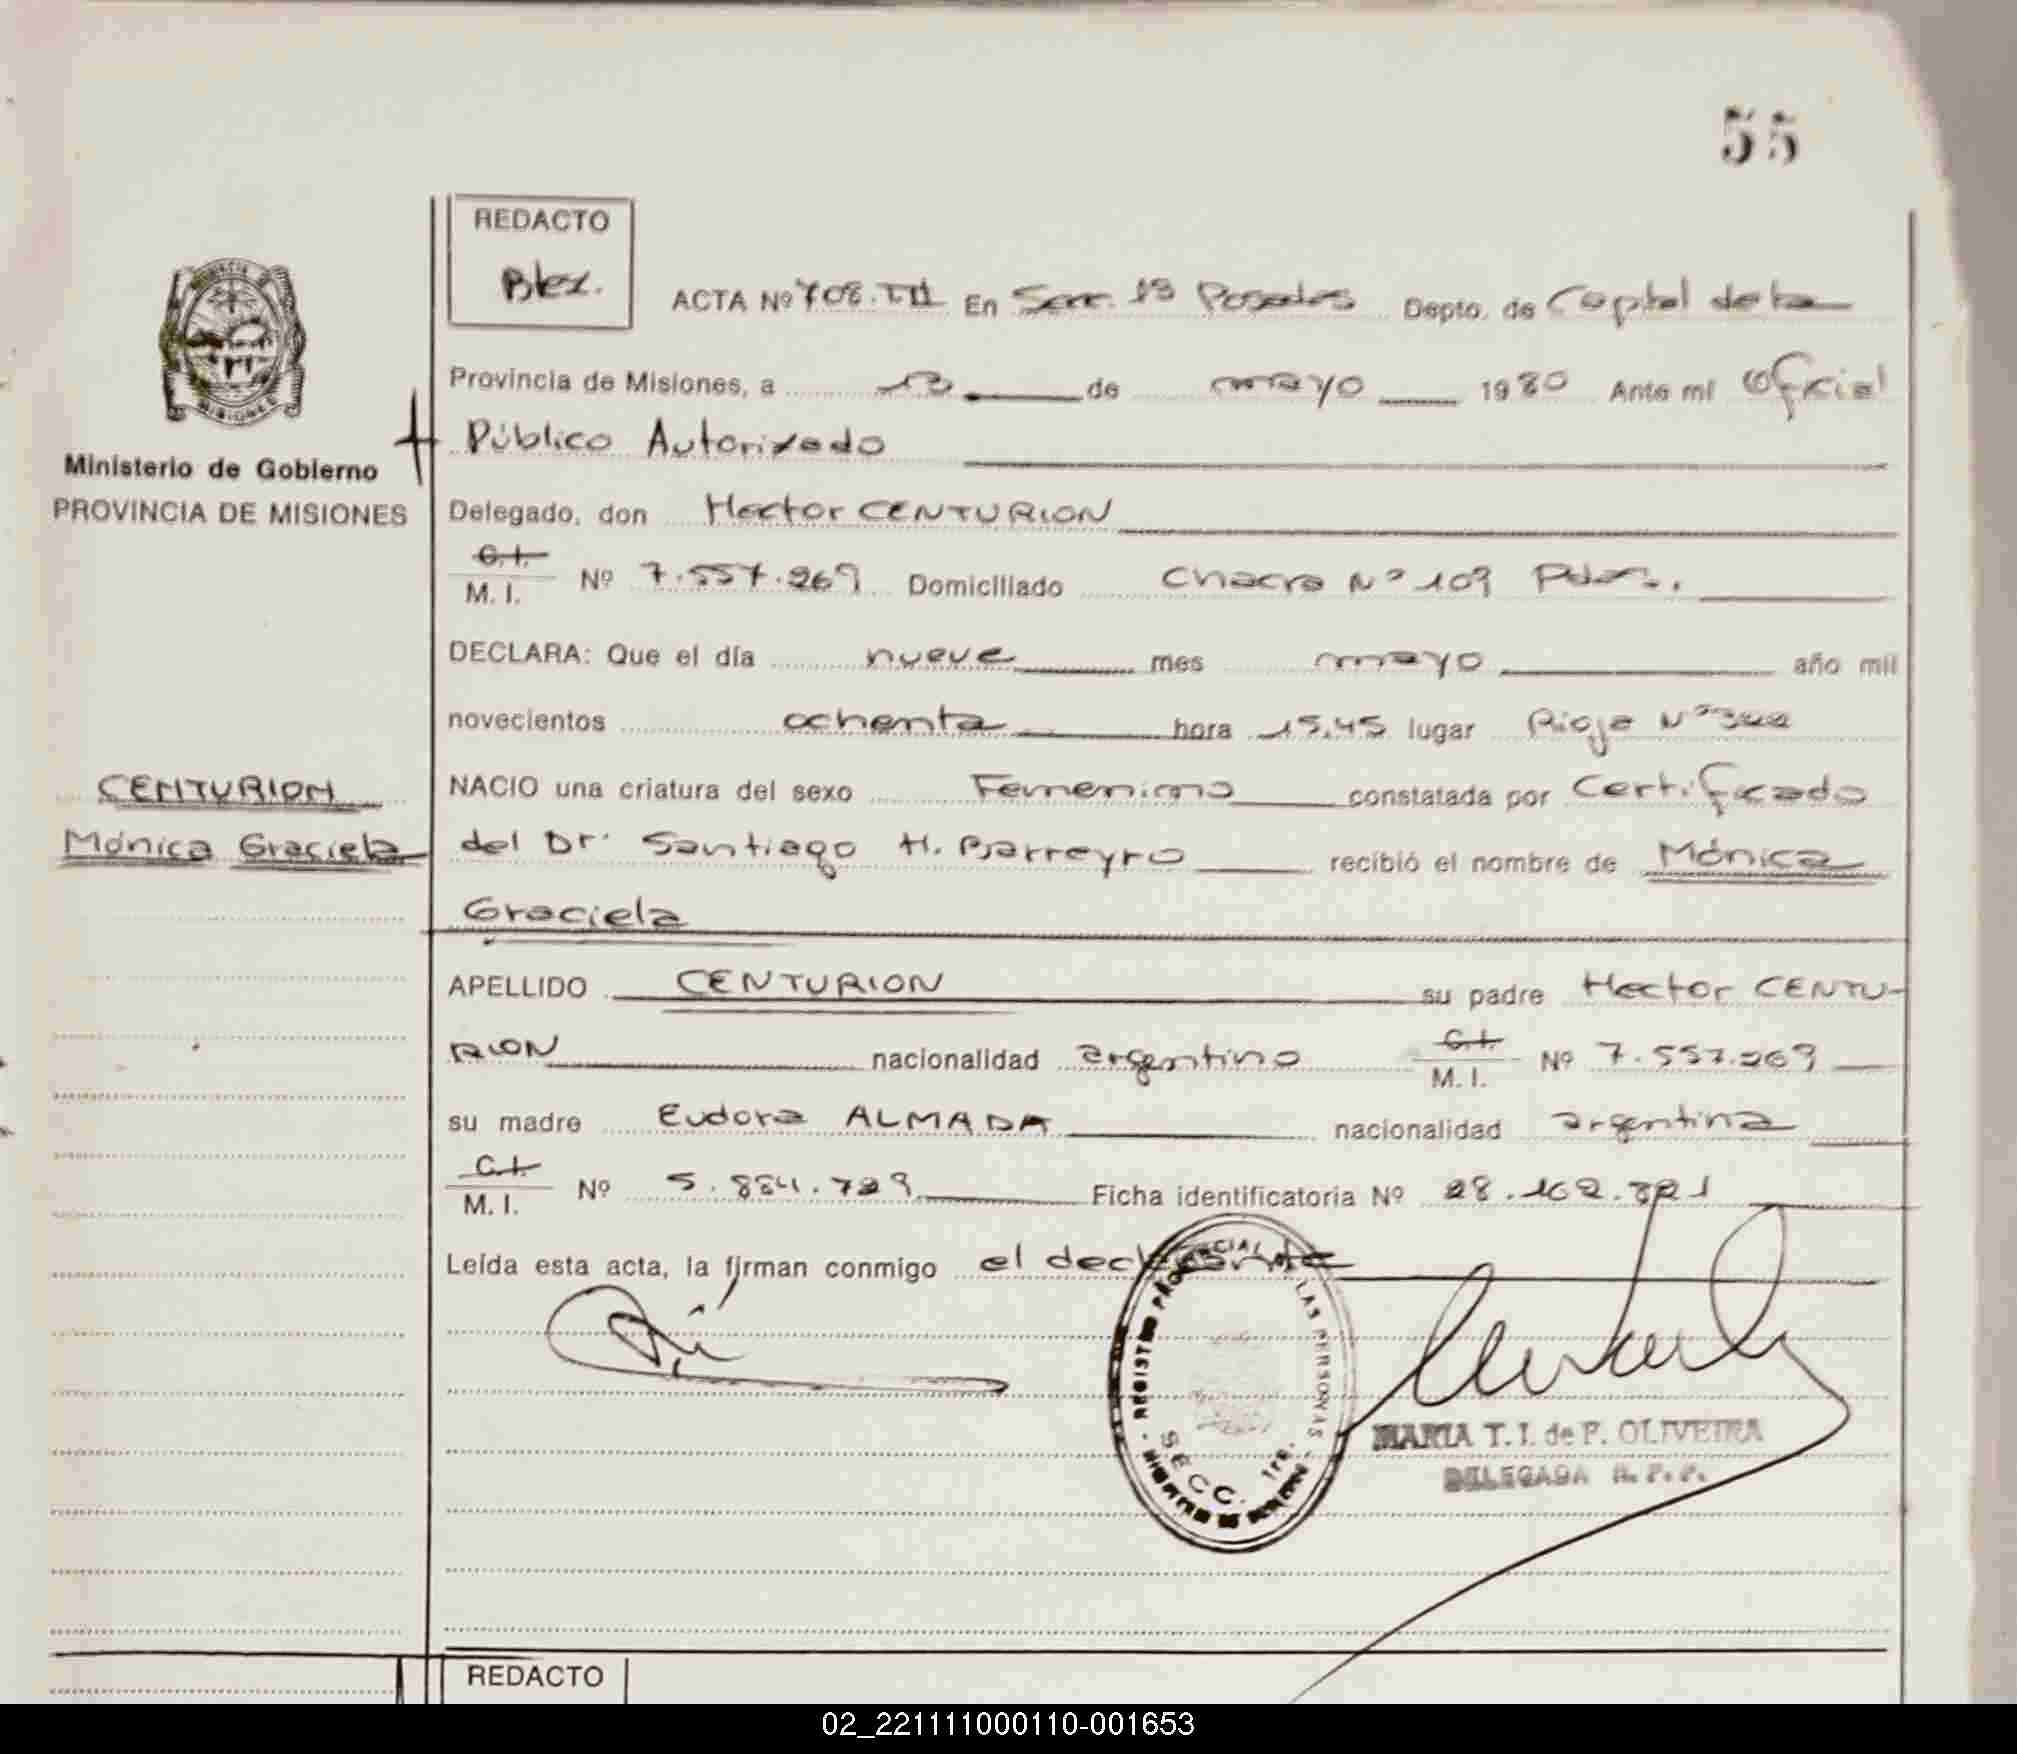 55
REDACTO
Blez.
ACTA Nº 708. TII En Secc. 1ª Posadas Depto. de Capital de la
Provincia de Misiones, a 13 de mayo 1980 Ante mí Oficial
Público Autorizado
Ministerio de Gobierno
PROVINCIA DE MISIONES
Delegado, don Hector CENTURION
C.I.
M. I. Nº 7.557.269 Domiciliado Chacra Nº 109 Pdas.
DECLARA: Que el día nueve mes mayo año mil
novecientos ochenta hora 15,45 lugar Rioja Nº
CENTURION
Mónica Graciela
NACIO una criatura del sexo Femenino constatada por Certificado
del Dr. Santiago H. Barreyro recibió el nombre de Mónica
Graciela
APELLIDO CENTURION su padre Hector CENTU-
RION nacionalidad argentino C.I. M. I. Nº 7.557.269
su madre Eudora ALMADA nacionalidad argentina
C.I.
M. I. Nº 5.884.729 Ficha identificatoria Nº 28.162.821
Leída esta acta, la firman conmigo el declarante
REGISTRO PROVINCIAL DE LAS PERSONAS
SECC. 1ra.
MARIA T. I. de F. OLIVEIRA
DELEGADA R. P. P.
REDACTO
02_221111000110-001653